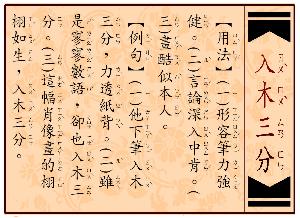 入木三分
【用法】(一)形容筆力強
健。(二)言論深入中肯。(
三)畫酷似本人。
【例句】(一)他下筆入木
三分，力透紙背。(二)雖
是寥寥數語，卻也入木三
分。(三)這幅肖像畫的栩
栩如生，入木三分。